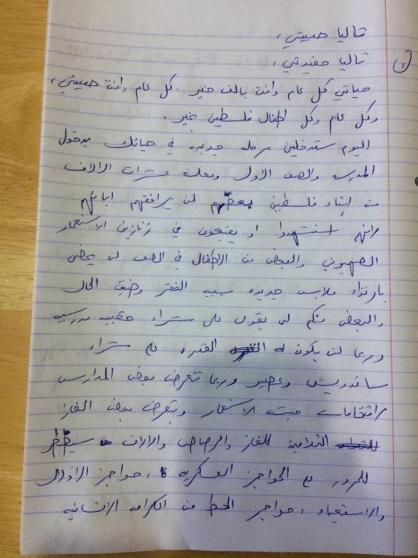 تاليا حبيبتي،
①
تاليا حفيدتي،
حياتي كل عام وانت بالف خير. كل عام وانت حبيبتي،
وكل عام وكل اطفال فلسطين بخير.
اليوم ستدخلين مرحله جديده في حياتك بدخول
المدرسه والصف الاول ومعك عشرات الالاف
من ابناء فلسطين بعضهم لن يرافقهم اباءهم
لانهم استشهدوا او يقبعون في زنازين الاستعمار
الصهيوني والبعض من الاطفال في الصف لن يحظى
بارتداء ملابس جديده بسبب الفقر وضيق الحال
والبعض منكم لن يقوى على شراء حقيبه مدرسيه
وربما لن يكون له القدره على شراء
ساندويش وعصير وربما تتعرض بعض المدارس
لاقتحامات جيش الاستعمار ويتعرض بعض
التلاميذ للغاز والرصاص والالاف سيضطر
للمرور عبر الحواجز العسكريه، حواجز الاذلال
والاستعباد، حواجز الحط من الكرامه الانسانيه